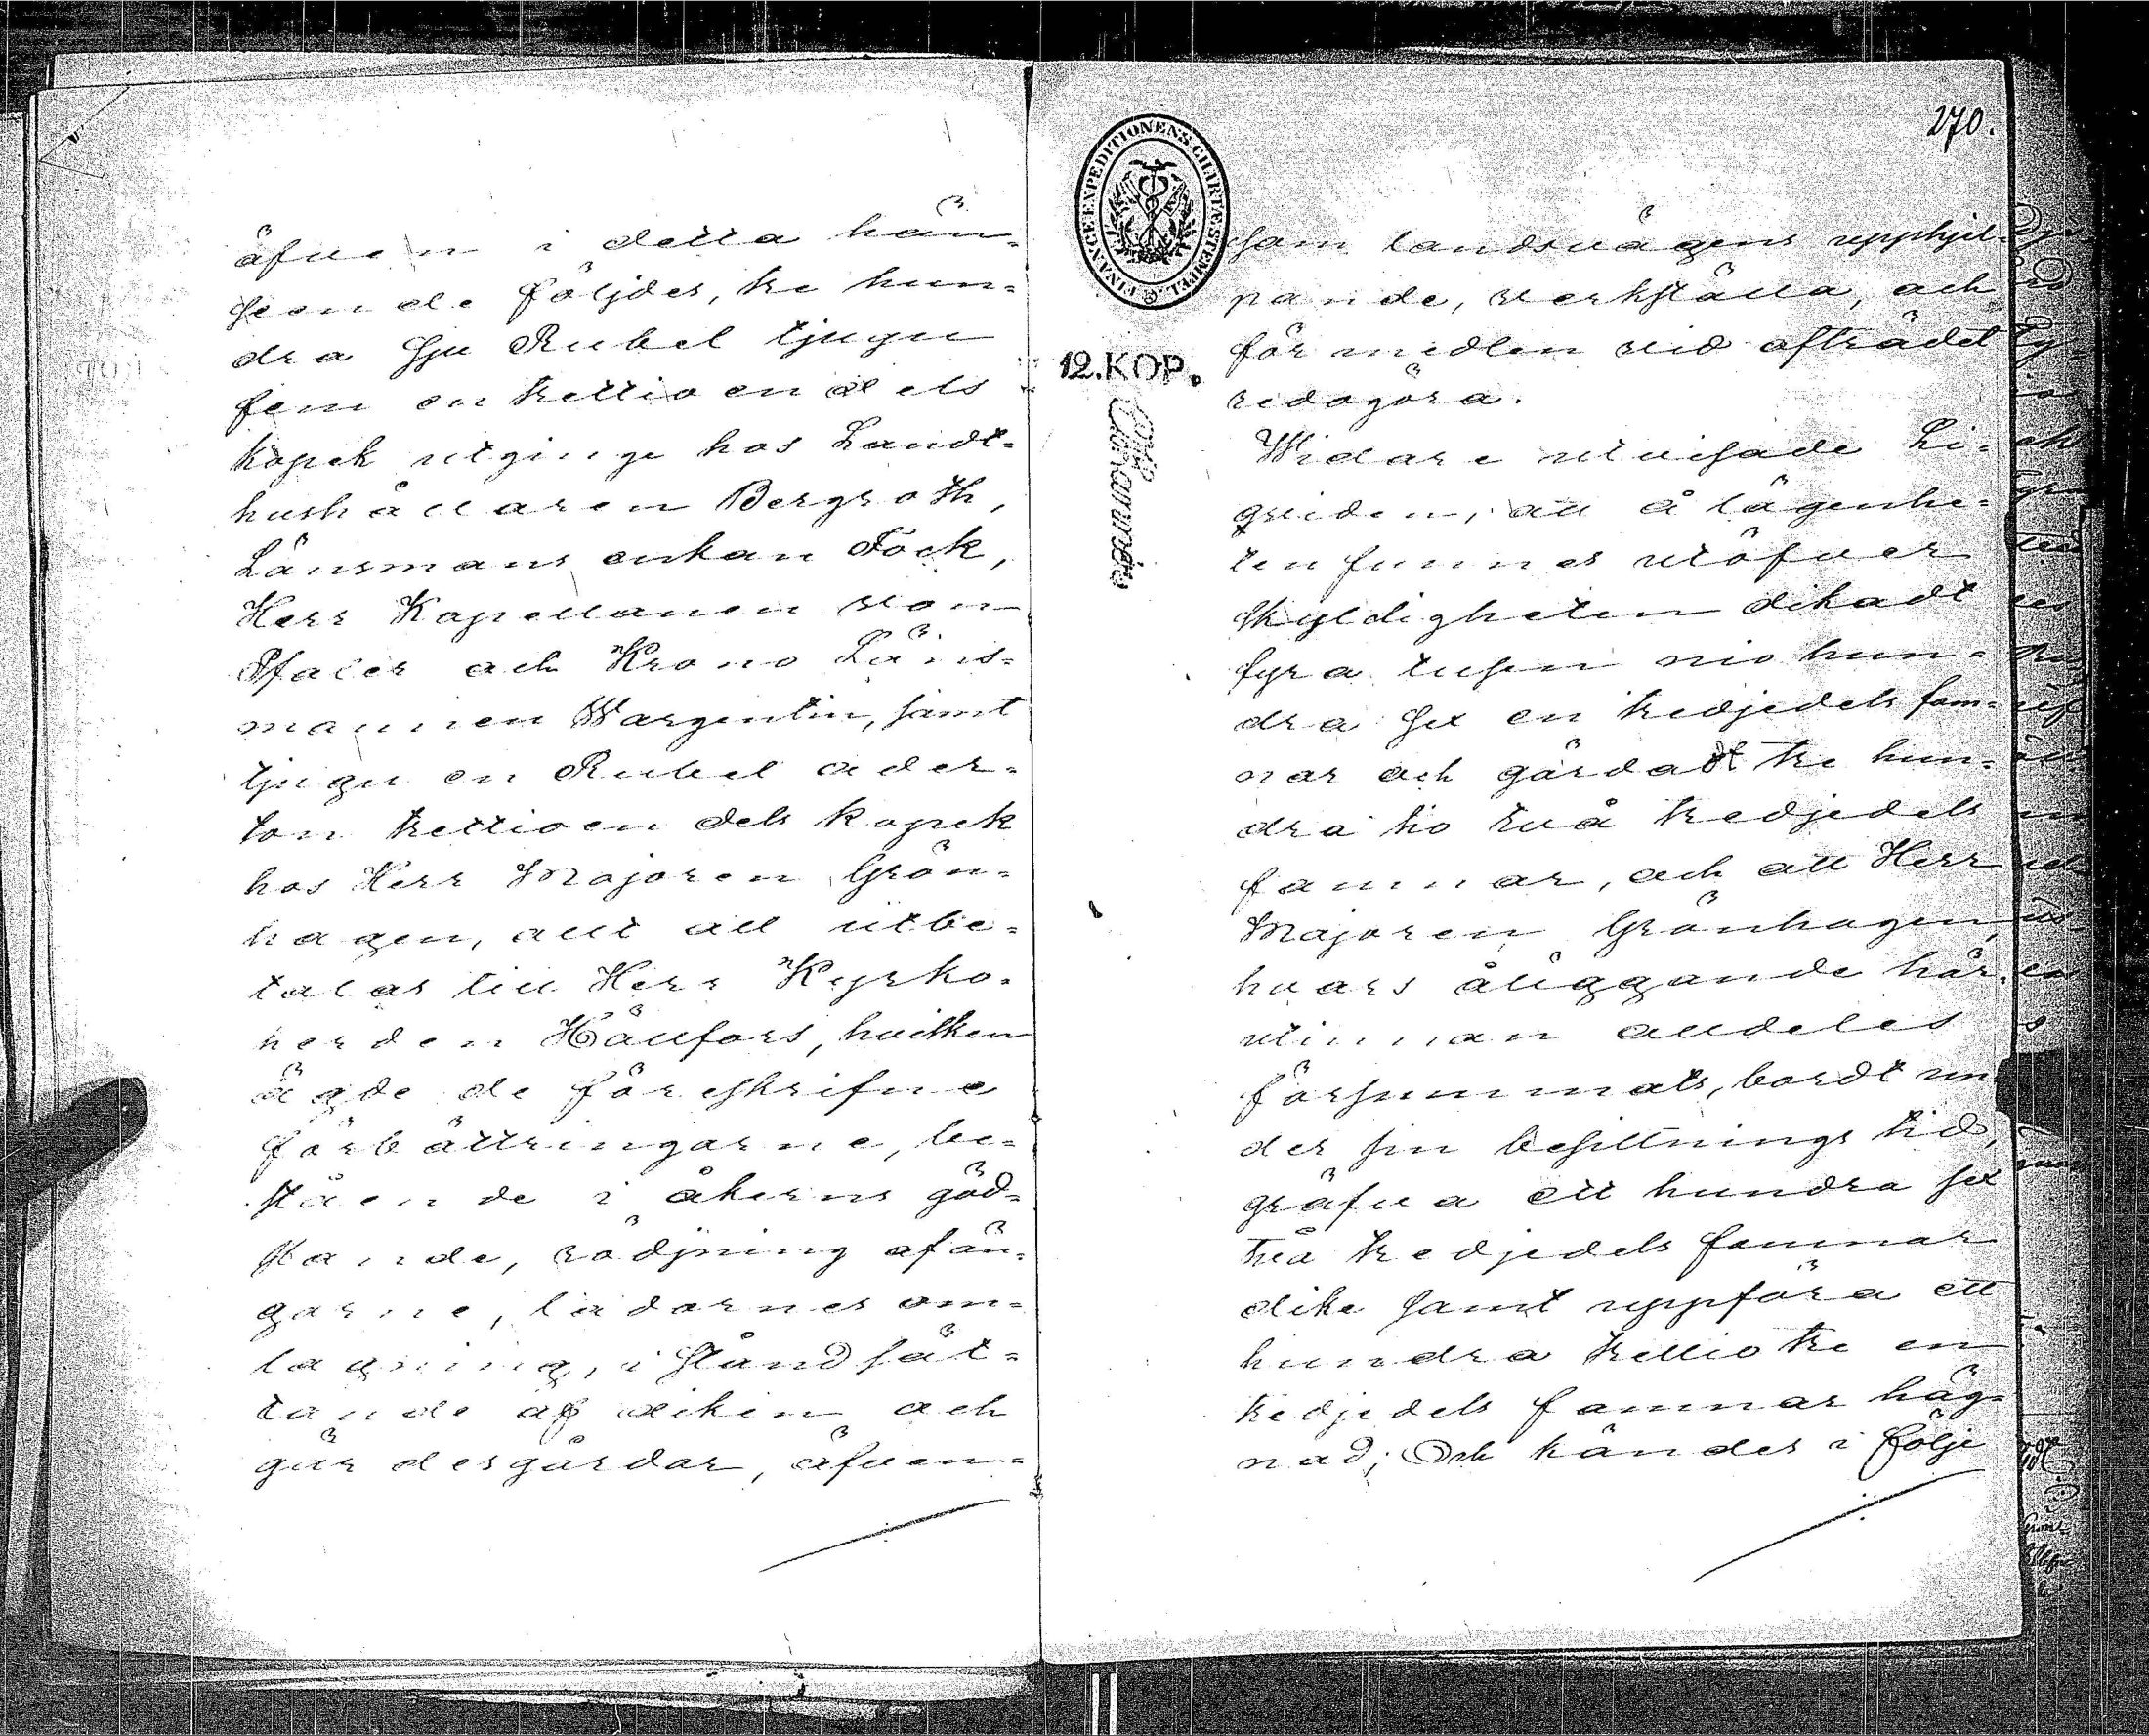 äfven i detta hän-
seende följder, tre hun-
dra sju Rubel tjugu
fem en trettioendels
kopek utginge hos Landt-
hushållaren Bergroth,
Länsmans enkan Fock,
Herr Kapellanen von
Pfaler och Krono Läns-
mannen Wargentin, samt
tjugu en Rubel ader-
ton trettioen dels kopek
hos Herr Majoren Grön-
hagen, allt att utbe-
talas till Herr Kyrko-
herden Hällfors, hvilken
ägde de föreskrifne
förbättringarne, be-
stående i åkerns göd-
stande, rödjning af än-
garne, ladornes om-
lagning, i stånd sät-
tande af diken och
gärdesgårdar, äfven-
270.
FINANCE EXPEDITIONENS CHARTÆ STEMPEL
12.KOP.
som landsvägens upphjel-
pande, verkställa, och
för medlen vid afträdet
redogöra.
Widare utvisade Li-
qviden, att å lägenhe-
ten funnes utöfver
skyldigheten dikadt
fyra tusen nio hun-
dra sex en tredjedels fam-
nar och gärdadt tre hun-
dra tio två tredjedels
famnar, och att Herr
Majoren Grönhagen,
hvars åliggande här-
utinnan alldeles
försummats, bordt un-
der sin besittnings tid,
gräfva ett hundra sex
två tredjedels famnar
dike samt uppföra ett
hundra trettio tre en
tredjedels famnar häg-
nad; Och kändes i följe